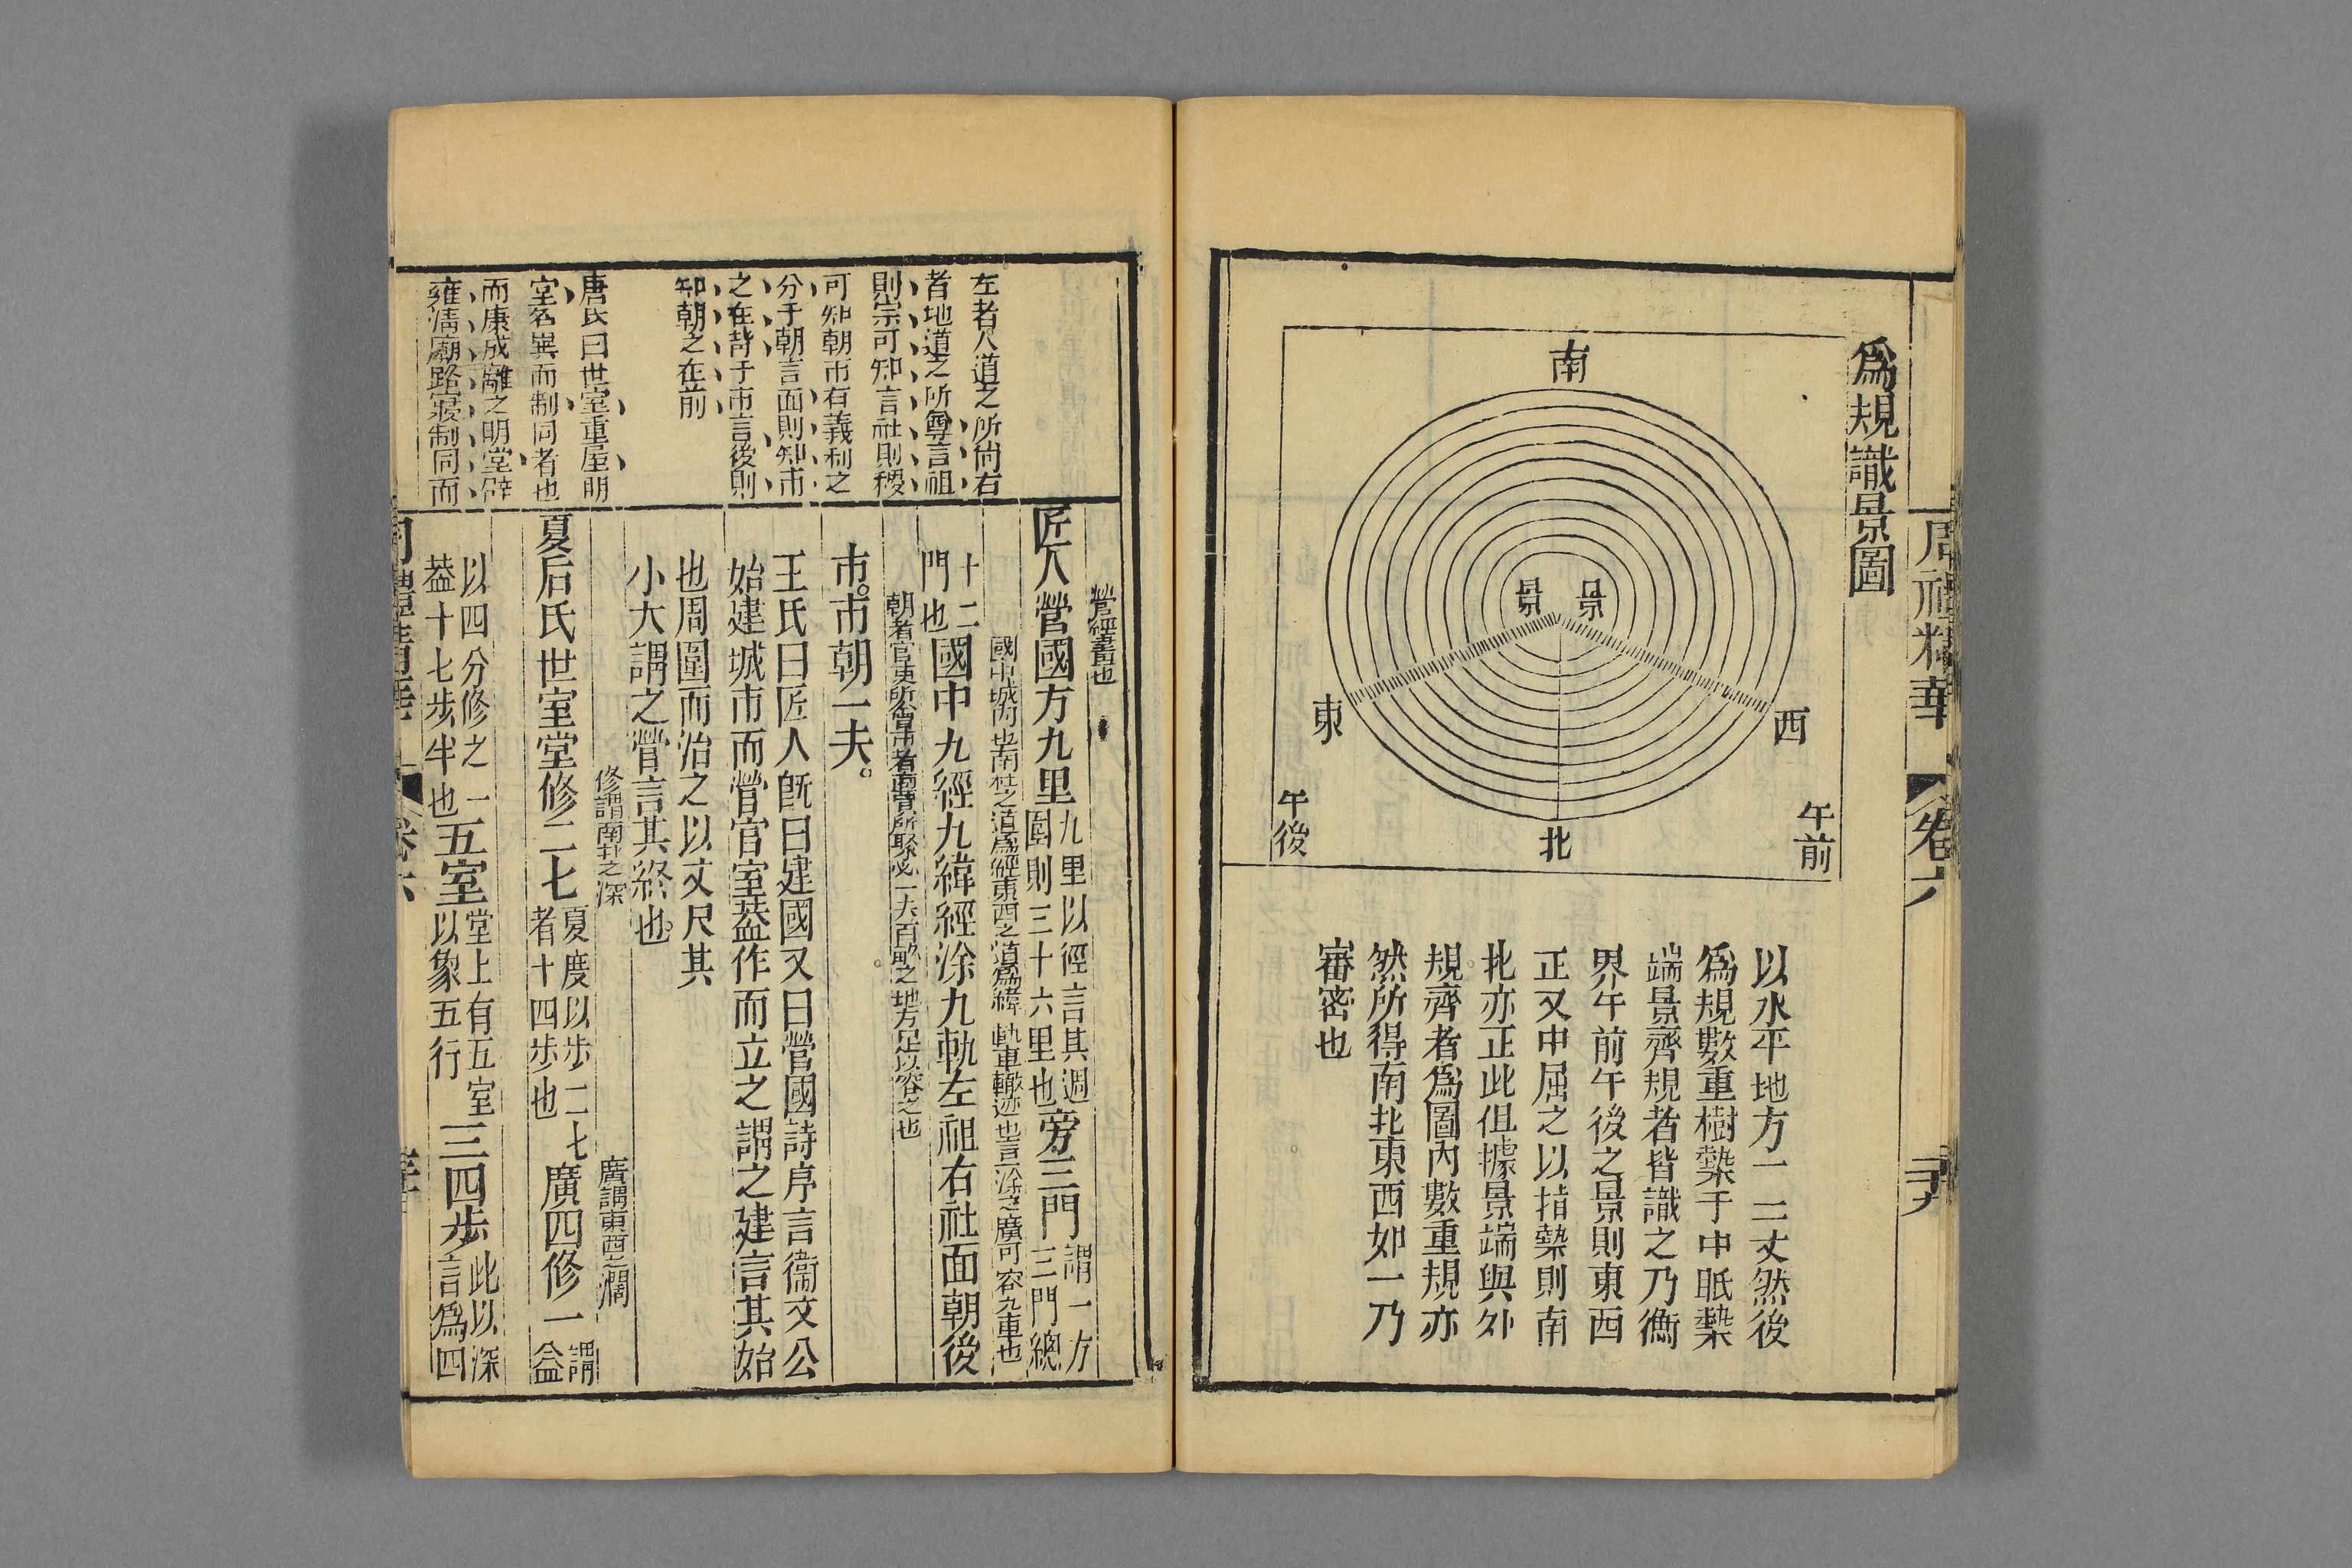 周禮精華
卷六
爲規識景圖
南
景
景
東
西
午後
北
午前
以水平地方一二丈然後
爲規數重樹槷于中眡槷
端景齊規者皆識之乃衡
界午前午後之景則東西
正又中屈之以指槷則南
北亦正此但據景端與外
規齊者爲圖內數重規亦
然所得南北東西如一乃
審密也
左者人道之所尙右
者地道之所尊言祖
則宗可知言社則稷
可知朝市有義利之
分于朝言面則知市
之在背于市言後則
知朝之在前
唐氏曰世室重屋明
堂名異而制同者也
而康成離之明堂辟
雍淸廟路寢制同而
營經畫也
匠人營國方九里九里以徑言其週圍則三十六里也旁三門謂一方三門總
國中城內也南北之道爲經東西之道爲緯 軌車轍迹也言涂之廣可容九車也
十二門也國中九經九緯經涂九軌左祖右社面朝後
朝者官吏所會市者商賈所聚必一夫百畝之地方足以容之也
市。市朝一夫。
王氏曰匠人旣曰建國又曰營國詩序言衞文公
始建城市而營宮室葢作而立之謂之建言其始
也周圍而治之以丈尺其
小大謂之營言其終也
修謂南北之深
廣謂東西之濶
夏后氏世室堂修二七夏度以步二七者十四步也廣四修一謂益
以四分修之一葢十七步半也五室堂上有五室以象五行三四步此以深言爲四